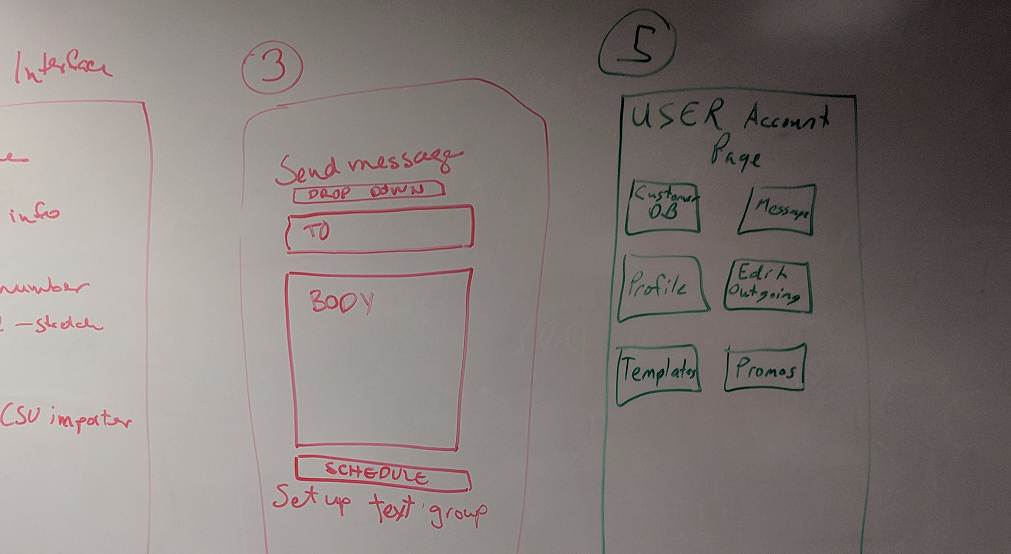 Interface
info
number
- sketch
CSV importer
3
Send message
DROP DOWN
TO
BODY
SCHEDULE
Set up text group
5
USER Account
Page
Customer
DB
Message
Profile
Edit
Outgoing
Templates
Promos